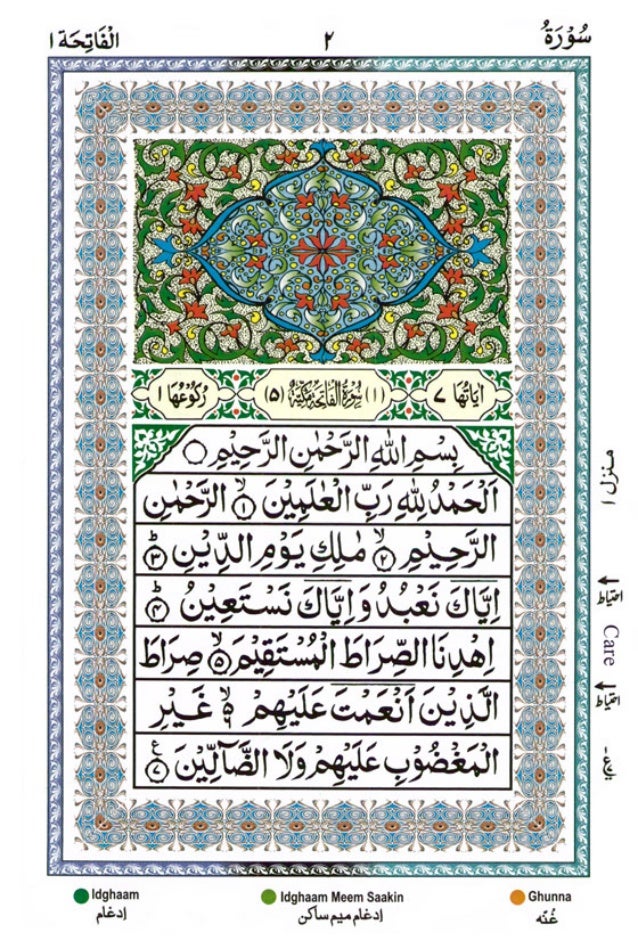 سُوْرَةُ ٢ الْفَاتِحَة ١
اٰيَاتُهَا ٧ (١) سُوْرَةُ الْفَاتِحَةِ مَكِّيَّةٌ (٥) رُكُوْعُهَا ١
بِسْمِ اللهِ الرَّحْمٰنِ الرَّحِيْمِ ○
اَلْحَمْدُ لِلّٰهِ رَبِّ الْعٰلَمِيْنَ ۙ﴿١﴾ الرَّحْمٰنِ
الرَّحِيْمِ ۙ﴿٢﴾ مٰلِكِ يَوْمِ الدِّيْنِ ؕ﴿٣﴾
اِيَّاكَ نَعْبُدُ وَاِيَّاكَ نَسْتَعِيْنُ ؕ﴿٤﴾
اِهْدِنَا الصِّرَاطَ الْمُسْتَقِيْمَ ۙ﴿٥﴾ صِرَاطَ
الَّذِيْنَ اَنْعَمْتَ عَلَيْهِمْ ۙ۬ۙ﴿٦﴾ غَيْرِ
الْمَغْضُوْبِ عَلَيْهِمْ وَلَا الضَّآلِّيْنَ ﴿٧﴾ ع
منزل ١
احتیاط
Care
احتیاط
Idghaam
اِدغام
Idghaam Meem Saakin
اِدغام میم ساکن
Ghunna
غُنّه